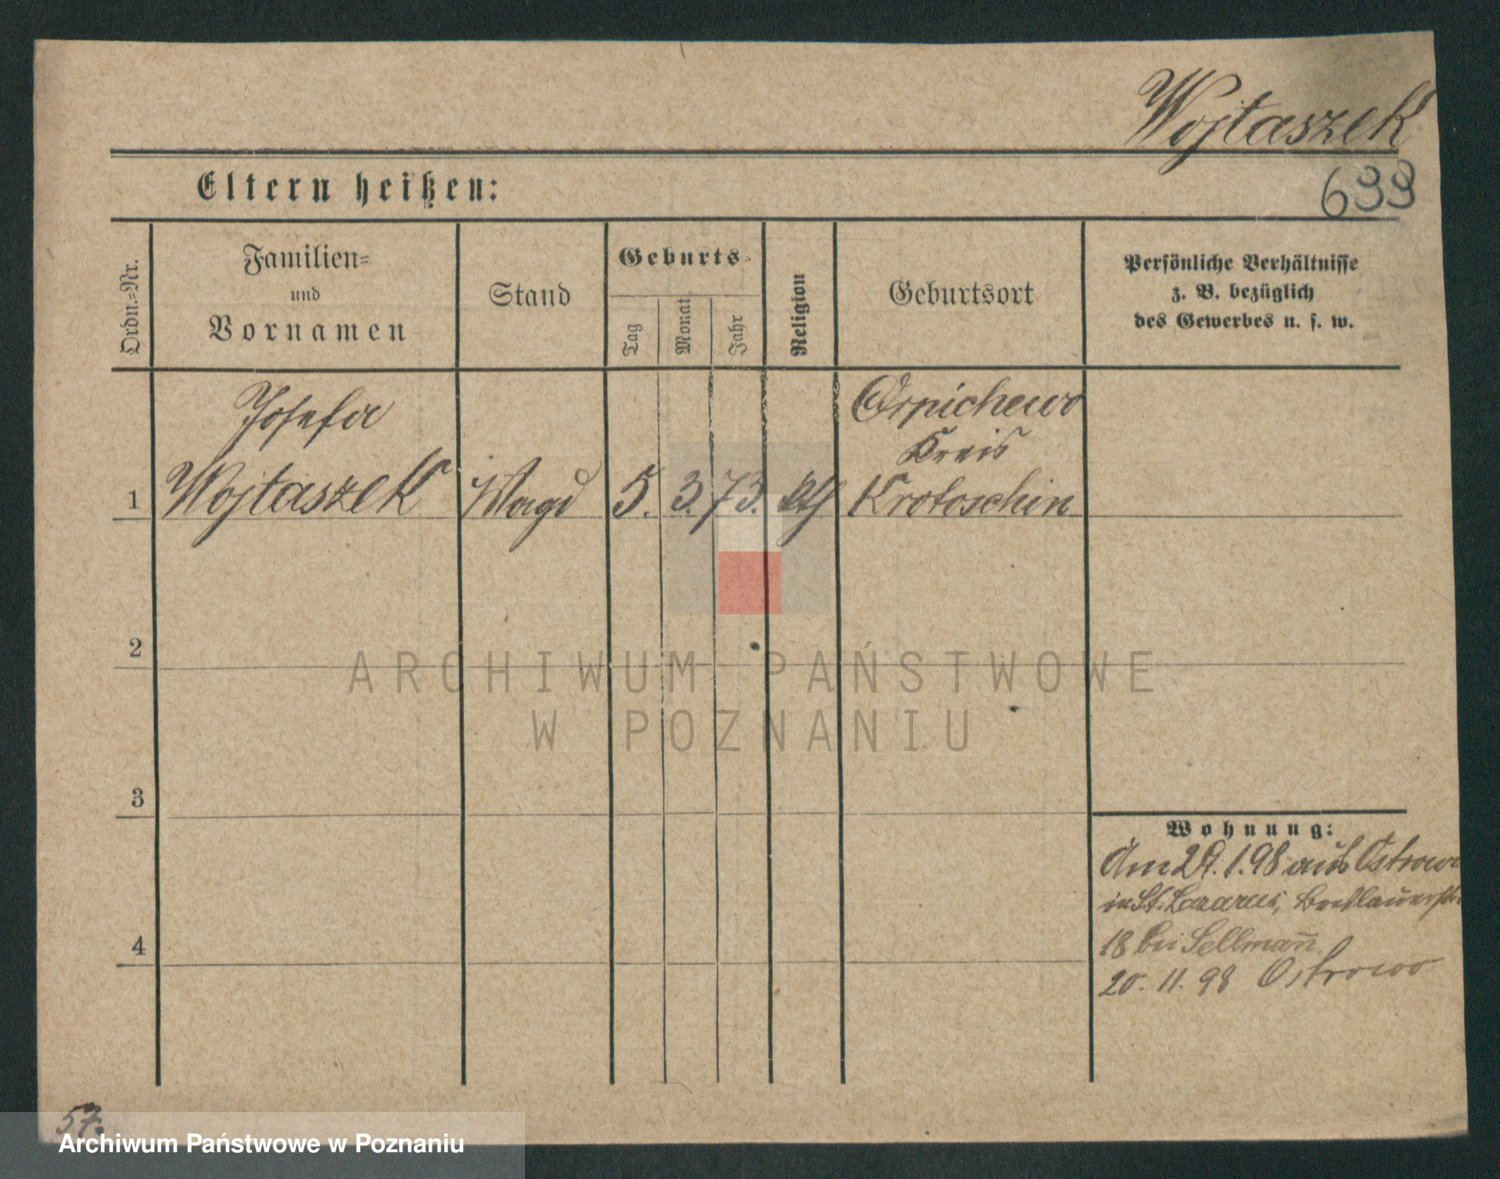 Wojtaszek
Eltern heißen:
699
Ordn.=Nr.
Familien=
und
Vornamen
Stand
Geburts=
Tag
Monat
Jahr
Religion
Geburtsort
Persönliche Verhältnisse
z. B. bezüglich
des Gewerbes u. s. w.
1
Josefa
Wojtaszek
Magd
5.
3.
73.
kth
Orpichewo
Kreis
Krotoschin
2
ARCHIWUM PAŃSTWOWE
W POZNANIU
3
4
Wohnung:
Am 29.1.98 aus Ostrowo
in St. Lazarus, Breslauerstr.
18 bei Sellman̄
20. 11. 98 Ostrowo
57.
Archiwum Państwowe w Poznaniu